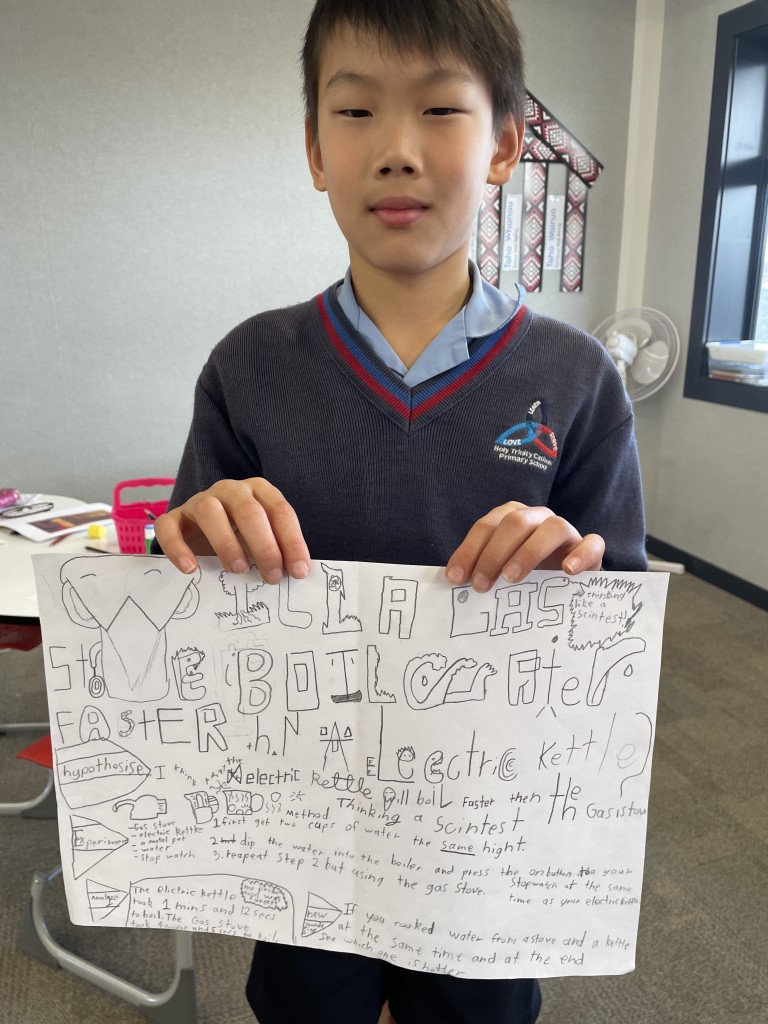 Taha Whanau
Taha Wairua
LEARN
LOVE
SERVE
Holy Trinity Catholic
Primary School
WILL A GAS
Thinking
like a
Scintest!
StovE BOIL WAter
FASTER thAN AN ELeectric Kettle?
hypothosise
I think that the electric Kettle will boil Faster then the Gas stove
Thinking a Scintest
Experiment
-Gas stove
- electric kettke
- a metal pot
- water
- stop watch
Method.
1. first get two cups of water the same hight.
2. dip the water into the boiler and press the on button to your
Stopwatch at the same
time as your electric kettle
3. reapeat step 2 but using the gas stove.
The electric kettle
took 1 mins and 12 secs
to boil. The Gas stove
took
new
If you cooked water from a stove and a kettle
at the same time and at the end
see which one is hotter